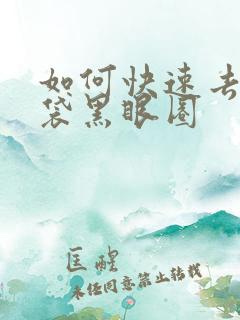 如何快速去
袋黑眼圈
匡醒
未经同意禁止转载